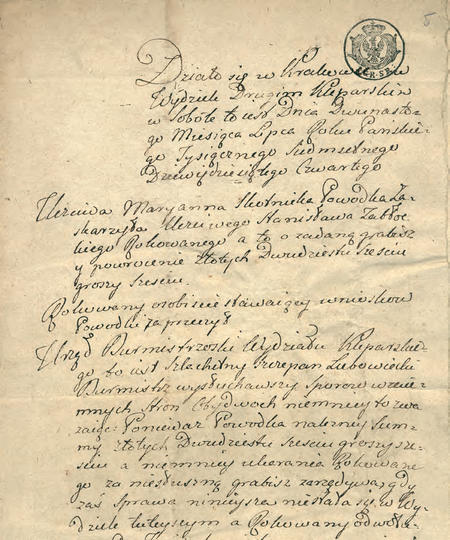 5
4 GR. SR.
Działo się w Krakowie w
Wydziele Drugim Kleparskim
w Sobotę to iest Dnia Dwunaste-
go Miesiąca Lipca Roku Pańskie-
go Tysiącznego Siedmsetnego
Dziewiędziesiątego Czwartego
Uczciwa Maryanna Skotnicka Powodka Za-
skarzyła Uczciwego Stanisława Zabłoc-
kiego Pokowanego a to o zadaną grabisz
y powrocenie złotych Dwudziestu Sześciu
groszy sześciu.
Pokowany osobiscie stawaiący wnioskom
Powodki zaprzeczył
Urząd Burmistrzoski Wydziału Kleparskie-
go to iest Szlachetny Szczepan Lubowiecki
Burmistrz wysłuchawszy sporow wzaie-
mnych stron Obydwoch niemniey to zwa-
zaiąc: Ponieważ Powodka należney sum-
my złotych Dwudziestu sześciu groszy sze-
ściu a niemniey ukarania Pokowane-
go za niesłuszną grabisz zarzędywa, gdy
zaś sprawa ninieysza niestała się w Wy-
dziele tuteyszym a Pokowany odwoła-